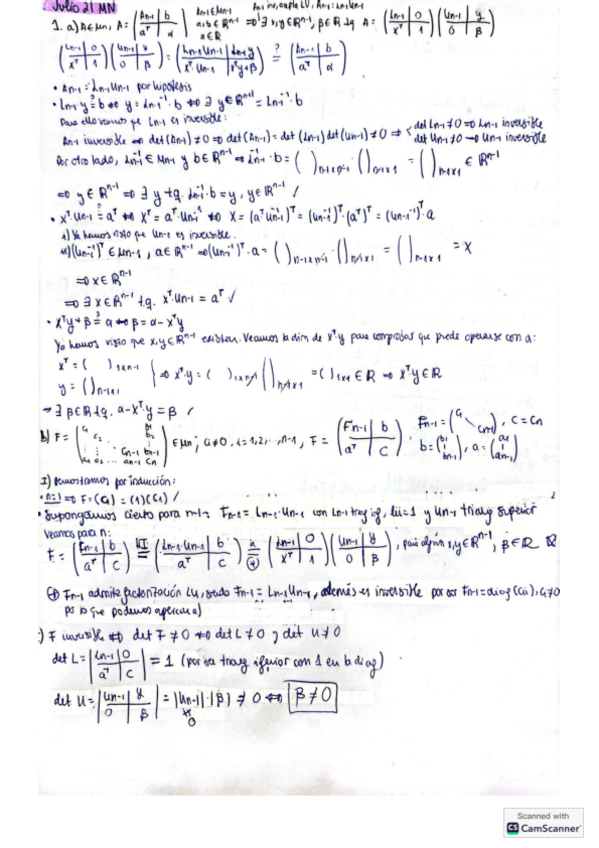 Julio 21 MN
1. a) A∈Mn, A = (An-1 | b / aᵀ | α) An-1∈Mn-1 a,b∈ℝⁿ⁻¹ α∈ℝ An-1 inv, admite LU, An-1 = Ln-1Un-1 ⇒ ∃ x,y∈ℝⁿ⁻¹, β∈ℝ tq A = (Ln-1 | 0 / xᵀ | 1)(Un-1 | y / 0 | β)
(Ln-1 | 0 / xᵀ | 1)(Un-1 | y / 0 | β) = (Ln-1Un-1 | Ln-1y / xᵀ·Un-1 | xᵀy+β) ?= (An-1 | b / aᵀ | α)
• An-1 = Ln-1Un-1 por hipótesis
• Ln-1·y ?= b ⇔ y = Ln-1⁻¹·b ⇔ ∃ y∈ℝⁿ⁻¹ = Ln-1⁻¹·b
Para ello veamos que Ln-1 es inversible:
An-1 inversible ⇒ det(An-1) ≠ 0 ⇒ det(An-1) = det(Ln-1)det(Un-1) ≠ 0 ⇒ det Ln-1 ≠ 0 ⇒ Ln-1 inversible
det Un-1 ≠ 0 ⇒ Un-1 inversible
Por otro lado, Ln-1⁻¹ ∈ Mn-1 y b∈ℝⁿ⁻¹ ⇒ Ln-1⁻¹·b = ( )n-1×n-1 · ( )n-1×1 = ( )n-1×1 ∈ ℝⁿ⁻¹
⇒ y∈ℝⁿ⁻¹ ⇒ ∃ y tq. Ln-1⁻¹·b = y, y∈ℝⁿ⁻¹ /
• xᵀ·Un-1 ?= aᵀ ⇔ xᵀ = aᵀ·Un-1⁻¹ ⇔ x = (aᵀUn-1⁻¹)ᵀ = (Un-1⁻¹)ᵀ·(aᵀ)ᵀ = (Un-1⁻¹)ᵀ·a
i) Ya hemos visto que Un-1 es inversible.
ii) (Un-1⁻¹)ᵀ ∈ Mn-1, a∈ℝⁿ⁻¹ ⇒ (Un-1⁻¹)ᵀ·a = ( )n-1×n-1 · ( )n-1×1 = ( )n-1×1 = x
⇒ x∈ℝⁿ⁻¹
⇒ ∃ x∈ℝⁿ⁻¹ tq. xᵀ·Un-1 = aᵀ ✓
• xᵀy + β ?= α ⇔ β = α - xᵀy
Ya hemos visto que x,y∈ℝⁿ⁻¹ existen. Veamos la dim de xᵀy para comprobar que puede operarse con α:
xᵀ = ( )1×n-1
y = ( )n-1×1
⇒ xᵀ·y = ( )1×n-1 ( )n-1×1 = ( )1×1 ∈ ℝ ⇒ xᵀy∈ℝ
⇒ ∃ β∈ℝ tq. α-xᵀ·y = β /
b) F = (C1 b1 / C2 b2 / ⋮ / Cn-1 bn-1 / a1 a2 ... an-1 Cn) ∈ Mn; Ci≠0, i=1,2,...,n-1, F = (Fn-1 | b / aᵀ | C), Fn-1 = (C1 ⋱ Cn-1), C = Cn
b = (b1 ⋮ bn-1), a = (a1 ⋮ an-1)
I) Demostramos por inducción:
• n=1 ⇒ F = (C1) = (1)(C1) /
• Supongamos cierto para n-1: Fn-1 = Ln-1·Un-1 con Ln-1 triang inf, lii=1 y Un-1 triang superior
Veamos para n:
F = (Fn-1 | b / aᵀ | C) HI= (Ln-1·Un-1 | b / aᵀ | C) a)= (Ln-1 | 0 / xᵀ | 1)(Un-1 | y / 0 | β), para algún x,y∈ℝⁿ⁻¹, β∈ℝ
Fn-1 admite factorización LU, siendo Fn-1 = Ln-1Un-1, además es inversible por ser Fn-1=diag(Ci), Ci≠0
por lo que podemos aplicar a)
:) F inversible ⇔ det F ≠ 0 ⇔ det L ≠ 0 y det U ≠ 0
det L = |Ln-1 | 0 / aᵀ | C| = 1 (por ser triang inferior con 1 en la diag)
det U = |Un-1 | y / 0 | β| = |Un-1|·|β| ≠ 0 ⇔ β ≠ 0
≠ 0
Scanned with
CS CamScanner